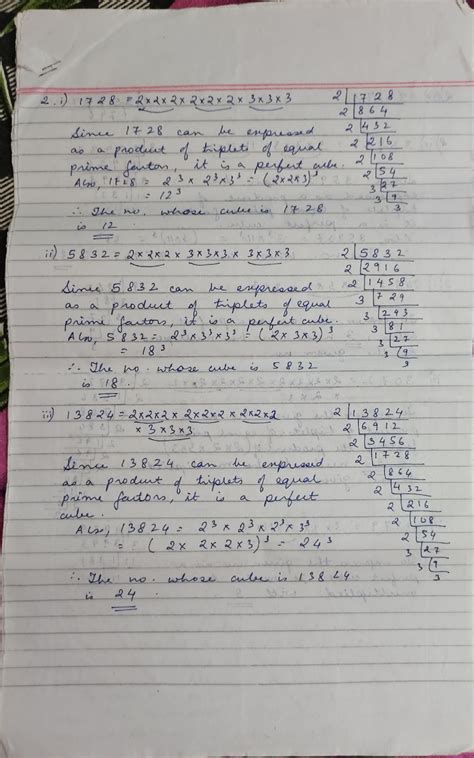 2. i) 1728 = 2×2×2×2×2×2×3×3×3
Since 1728 can be expressed
as a product of triplets of equal
prime factors, it is a perfect cube.
Also, 1728 = 2³ × 2³×3³ = (2×2×3)³
= 12³
∴ The no. whose cube is 1728
is 12
2 | 1728
2 | 864
2 | 432
2 | 216
2 | 108
2 | 54
3 | 27
3 | 9
3
ii) 5832 = 2×2×2 × 3×3×3 × 3×3×3
Since 5832 can be expressed
as a product of triplets of equal
prime factors, it is a perfect cube.
Also, 5832 = 2³×3³×3³ = (2×3×3)³
= 18³
∴ The no. whose cube is 5832
is 18.
2 | 5832
2 | 2916
2 | 1458
3 | 729
3 | 243
3 | 81
3 | 27
3 | 9
3
iii) 13824 = 2×2×2× 2×2×2 × 2×2×2
× 3×3×3
Since 13824 can be expressed
as a product of triplets of equal
prime factors, it is a perfect
cube.
Also, 13824 = 2³ × 2³ × 2³× 3³
= (2× 2×2×3)³ = 24³
∴ The no. whose cube is 13824
is 24
2 | 13824
2 | 6912
2 | 3456
2 | 1728
2 | 864
2 | 432
2 | 216
2 | 108
2 | 54
3 | 27
3 | 9
3